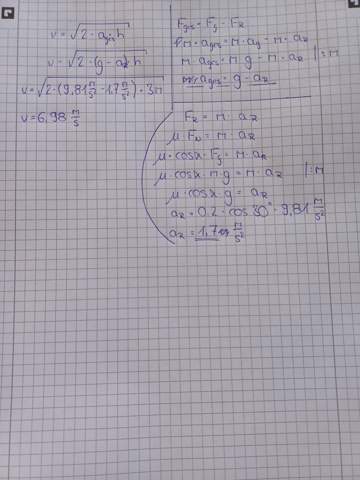 v = √2 · a_ges h
v = √2 · (g - a_R) h
v = √2 · (9,81 m/s² - 1,7 m/s²) · 3m
v = 6,98 m/s
F_ges = F_g - F_R
m · a_ges = m · a_g - m · a_R
m · a_ges = m · g - m · a_R | : m
a_ges = g - a_R
F_R = m · a_R
μ · F_N = m · a_R
μ · cosα · F_g = m · a_R
μ · cosα · m · g = m · a_R | : m
μ · cosα · g = a_R
a_R = 0,2 · cos 30° · 9,81 m/s²
a_R = 1,7 m/s²